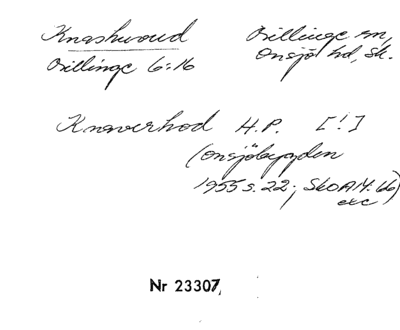 Knashuvud Billinge sn,
Billinge 6:16 Onsjö hd, Sk.
Knaverhod H.P. [!]
(Onsjöbygden
1955 s. 22; SkOAM:66)
exc
Nr 23307